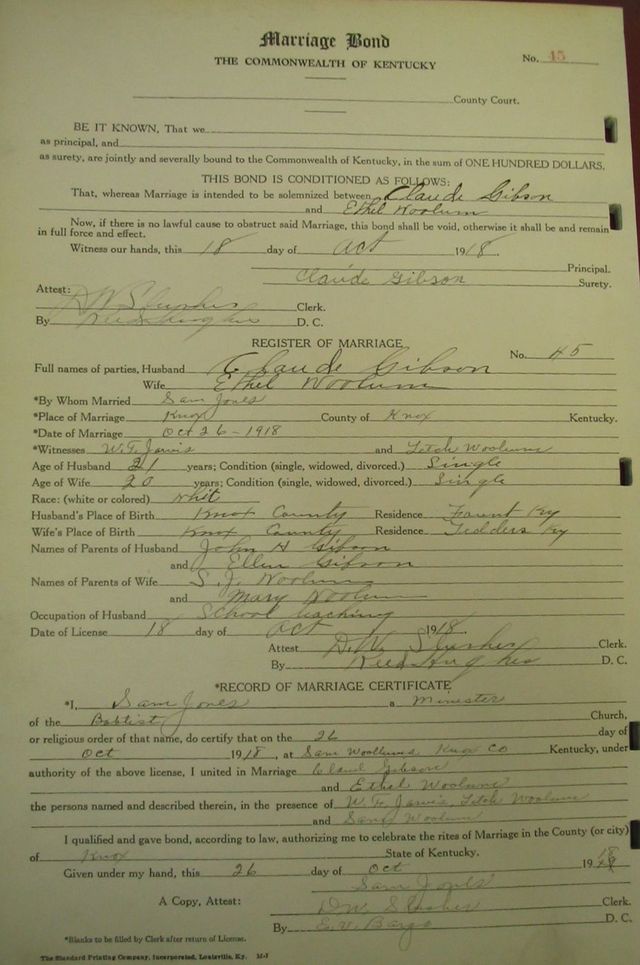 Marriage Bond
THE COMMONWEALTH OF KENTUCKY
No. 45
County Court.
BE IT KNOWN, That we
as principal, and
as surety, are jointly and severally bound to the Commonwealth of Kentucky, in the sum of ONE HUNDRED DOLLARS.
THIS BOND IS CONDITIONED AS FOLLOWS:
That, whereas Marriage is intended to be solemnized between Claude Gibson
and Ethel Woolum
Now, if there is no lawful cause to obstruct said Marriage, this bond shall be void, otherwise it shall be and remain
in full force and effect.
Witness our hands, this 18 day of Oct 1918.
Principal.
Claude Gibson Surety.
Attest:
D W Slusher Clerk.
By Reed Hughes D. C.
REGISTER OF MARRIAGE
No. 45
Full names of parties, Husband Claude Gibson
Wife Ethel Woolum
*By Whom Married Sam Jones
*Place of Marriage Knox County of Knox Kentucky.
*Date of Marriage Oct 26 - 1918
*Witnesses W. T. Jarvis and Letch Woolum
Age of Husband 21 years; Condition (single, widowed, divorced.) Single
Age of Wife 20 years; Condition (single, widowed, divorced.) Single
Race: (white or colored) whit
Husband's Place of Birth Knox County Residence Ky
Wife's Place of Birth Knox County Residence Tedders Ky
Names of Parents of Husband John H Gibson
and Ellen Gibson
Names of Parents of Wife S. J. Woolum
and Mary Woolum
Occupation of Husband School teaching
Date of License 18 day of Oct 1918.
Attest D. W. Slusher Clerk.
By Reed Hughes D. C.
*RECORD OF MARRIAGE CERTIFICATE
*I, Sam Jones a Minister
of the Baptist Church,
or religious order of that name, do certify that on the 26 day of
Oct 1918, at Sam Woolums Knox Co Kentucky, under
authority of the above license, I united in Marriage Claud Gibson
and Ethel Woolum
the persons named and described therein, in the presence of W. T. Jarvis, Letch Woolum
and Woolum
I qualified and gave bond, according to law, authorizing me to celebrate the rites of Marriage in the County (or city)
of Knox State of Kentucky.
Given under my hand, this 26 day of Oct 1918
Sam Jones
A Copy, Attest: D W Slusher Clerk.
By E. V. Bargo D. C.
*Blanks to be filled by Clerk after return of License.
The Standard Printing Company, Incorporated, Louisville, Ky. M-1